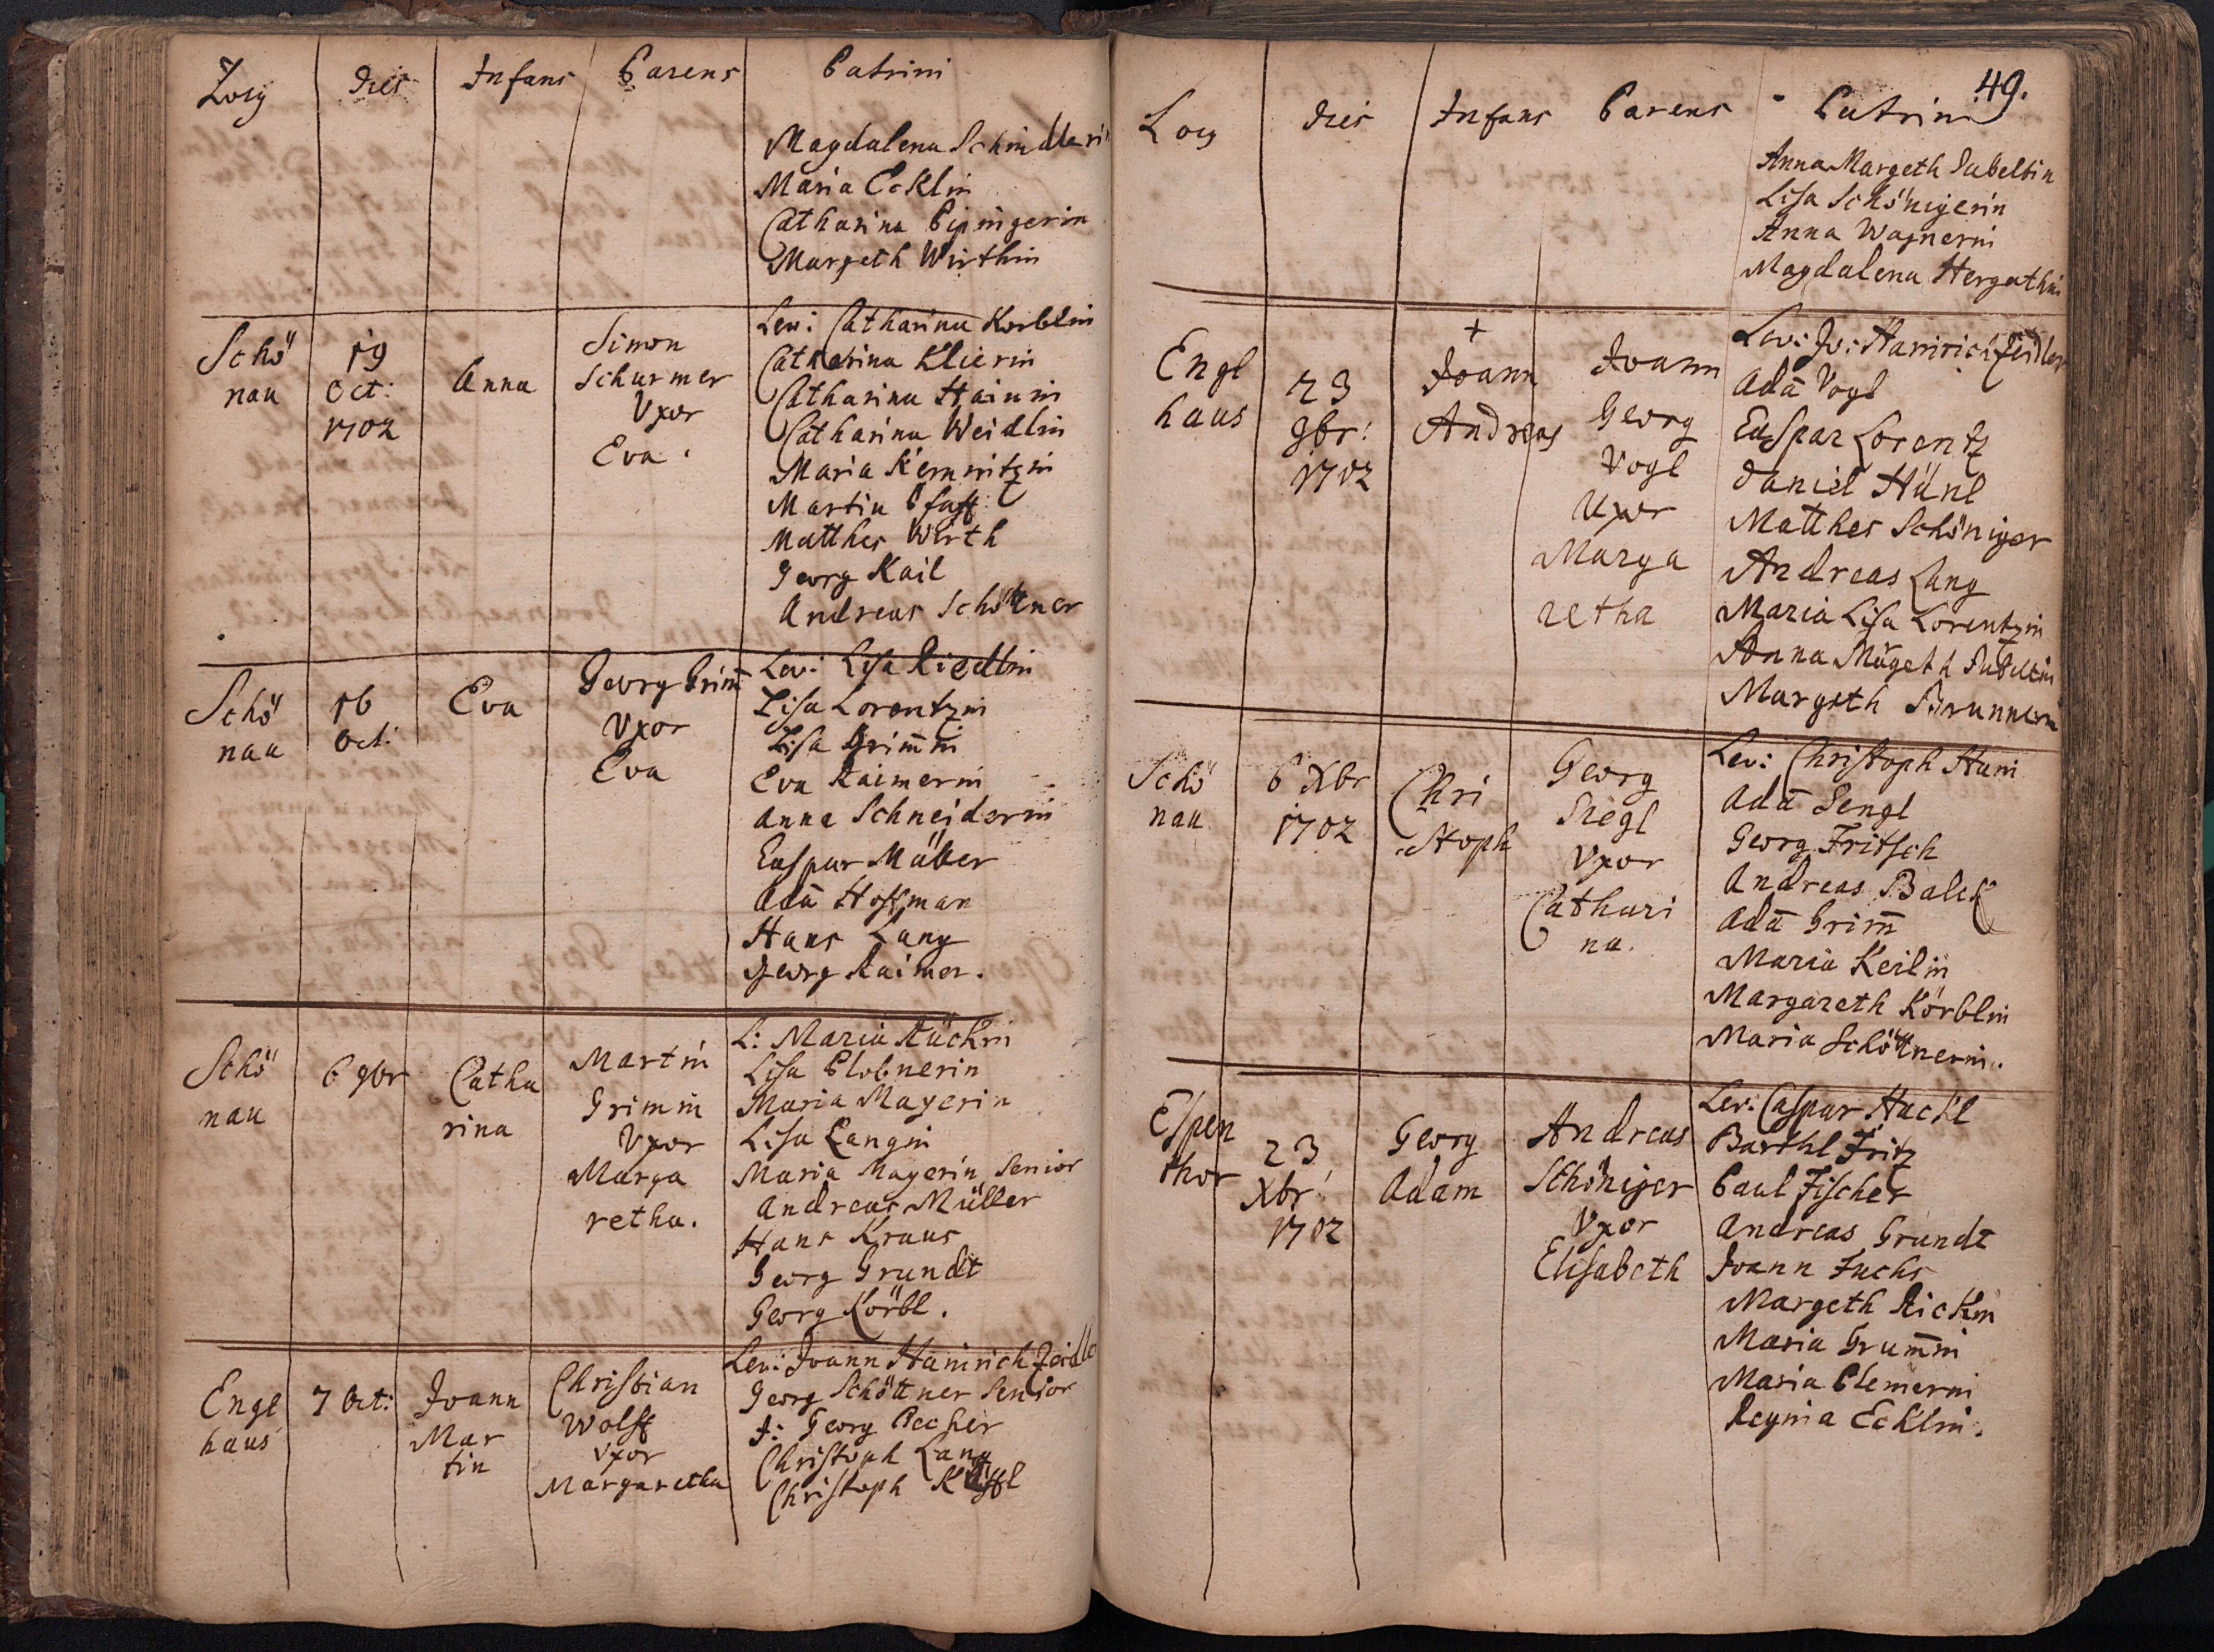 Locg dies Infans Parens Patrini
Magdalena Schindlerin
Maria Ecklin
Catharina Pipingerin
Margeth Wirthin
Schö
nau
19
Oct:
1702
Anna
Simon
Schurmer
Vxor
Eva.
Lev: Catharina Korblin
Catharina Klierin
Catharina Hainin
Catharina Weidlin
Maria Kemnitzin
Martin Pfaff
Matthes Wirth
Georg Kail
Andreas Schöttner
Schö
nau
16
Oct:
Eva
Georg Grim̄
Vxor
Eva
Lev: Lisa Riedlin
Lisa Lorentzin
Lisa Grim̄in
Eva Raimerin
Anna Schneiderin
Caspar Müller
Adā Hoffman
Hans Lang
Georg Raimer.
Schö
nau
6 9br
Catha
rina
Martin
Grimm
Vxor
Marga
retha.
L: Maria Rückin
Lisa Plobnerin
Maria Mayerin
Lisa Langin
Maria Mayerin Senior
Andreas Müller
Hans Kraus
Georg Grundt
Georg Körbl.
Engl
haus
7 Oct:
Joann
Mar
tin
Christian
Wolff
Vxor
Margaretha
Lev: Joann Hainrich Zeidler
Georg Schöttner Senior
J: Georg Pecher
Christoph Lang
Christoph
49.
Locg dies Infans Parens Patrini
Anna Margeth Sabeltin
Lisa Schönigerin
Anna Wagnerin
Magdalena Hergethin
Engl
haus
23
9br:
1702
+
Joann
Andreas
Joann
Georg
Vogl
Uxor
Marga
retha
Lev: Jo: Hainrich Zeidler
Adā Vogl
Caspar Lorentz
Daniel Hänl
Matthes Schöniger
Andreas Lang
Maria Lisa Lorentzin
Anna Māgeth Sabeltin
Margeth Brunnerin
Schö
nau
6 Xbr
1702
Chri
stoph
Georg
Siegl
Vxor
Cathari
na.
Lev: Christoph Hain
Adā Sengl
Georg Fritsch
Andreas Balck
Adā Grim̄
Maria Keilin
Margareth Körblin
Maria Schöttnerin.
Espen
thor
23
Xbr:
1702
Georg
Adam
Andreas
Schöniger
Vxor
Elisabeth
Lev: Caspar Hackl
Barthl Fritz
Paul Fischer
Andreas Grundt
Joann Fuchs
Margeth Rickin
Maria Grum̄in
Maria Clemerin
Regina Ecklin.